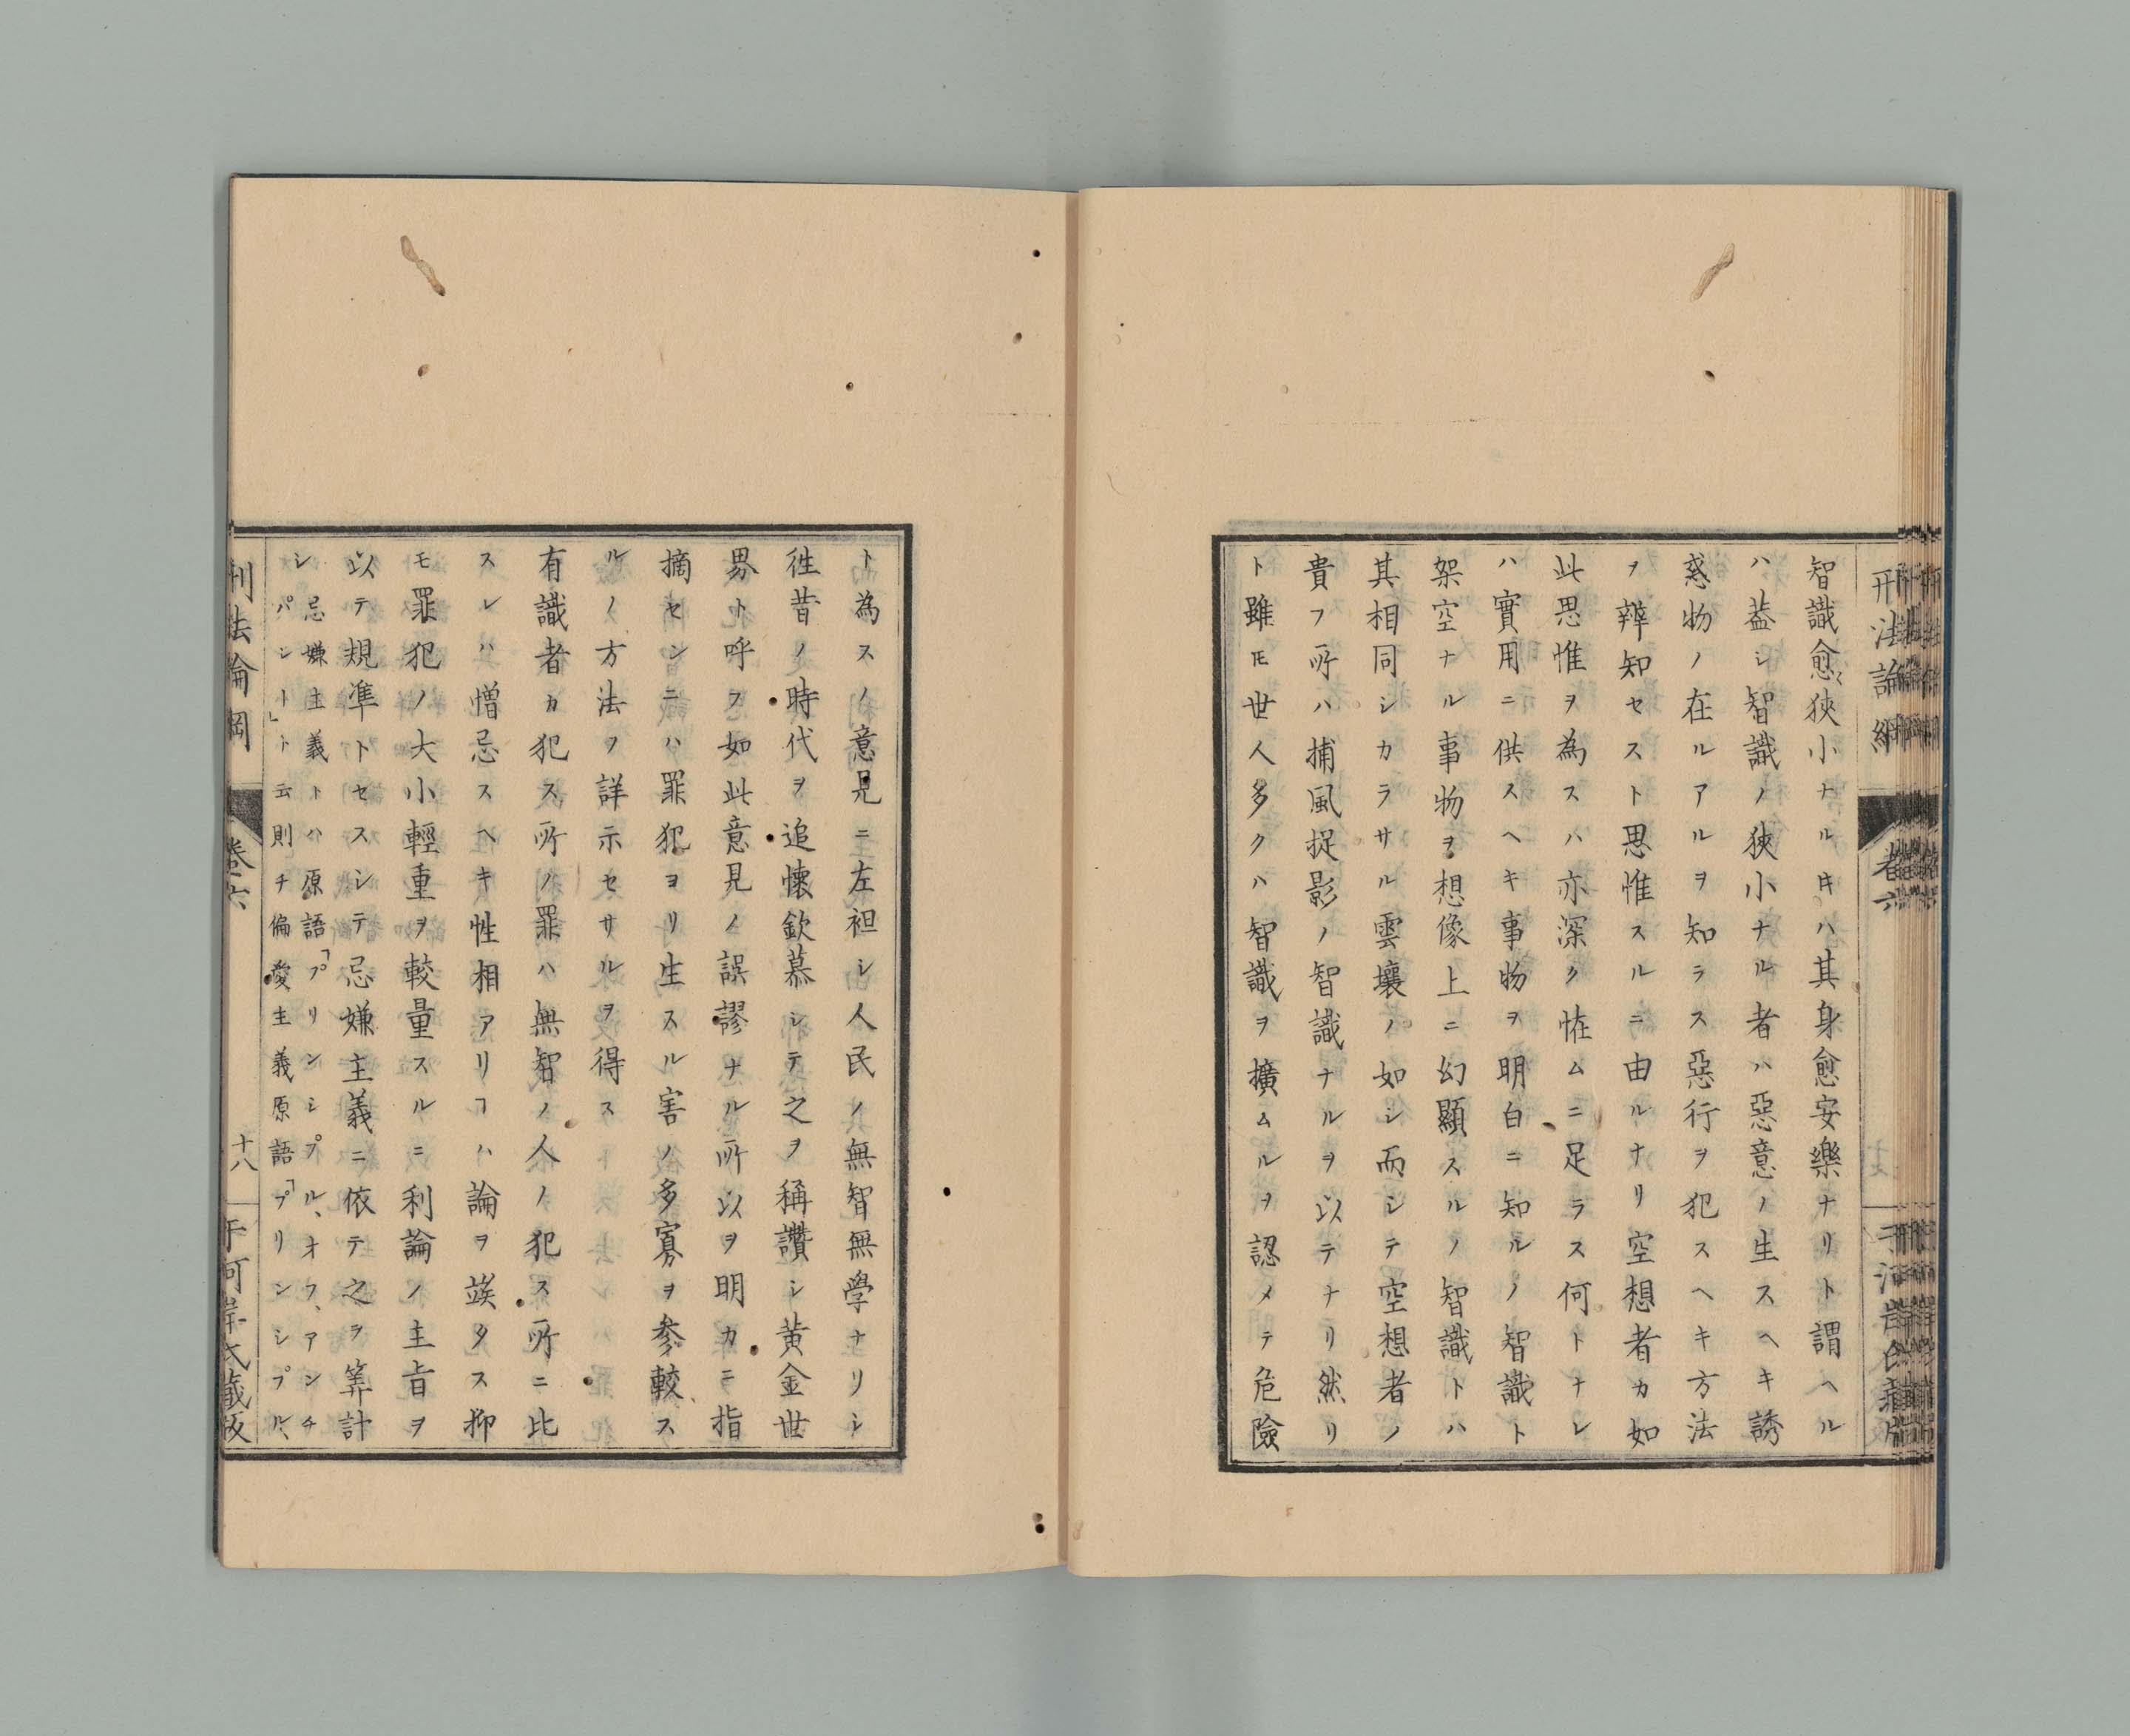 刑法論綱
卷六
智識愈狹小ナル𪜈ハ其身愈安樂ナリト謂ヘル
ハ葢シ智識ノ狹小ナル者ハ惡意ノ生スヘキ誘
惑物ノ在ルアルヲ知ラス惡行ヲ犯スヘキ方法
ヲ辨知セスト思惟スルニ由ルナリ空想者カ如
此思惟ヲ為スハ亦深ク恠ムニ足ラス何トナレ
ハ實用ニ供スヘキ事物ヲ明白ニ知ルノ智識ト
架空ナル事物ヲ想像上ニ幻顯スルノ智識トハ
其相同シカラサル雲壤ノ如シ而シテ空想者ノ
貴フ所ハ捕風捉影ノ智識ナルヲ以テナリ然リ
ト雖𪜈世人多クハ智識ヲ擴ムルヲ認メテ危險
ト為スノ意見ニ左袒シ人民ノ無智無學ナリシ
徃昔ノ時代ヲ追懷欽慕シテ之ヲ稱讚シ黃金世
界ト呼フ如此意見ノ誤謬ナル所以ヲ明カニ指
摘センニハ罪犯ヨリ生スル害ノ多寡ヲ參較ス
ルノ方法ヲ詳示セサルヲ得ス
有識者カ犯ス所ノ罪ハ無智ノ人ノ犯ス所ニ比
スレハ憎忌スヘキ性相アリヿハ論ヲ竢タス抑
モ罪犯ノ大小輕重ヲ較量スルニ利論ノ主旨ヲ
以テ規凖トセスシテ忌嫌主義ニ依テ之ヲ筭計
シ
忌嫌主義トハ原語「プリンシプル、オフ、アンチ
パシート」ト云則チ偏愛主義原語「プリンシプル、
刑法論綱
卷六
十八
于河岸氏藏版